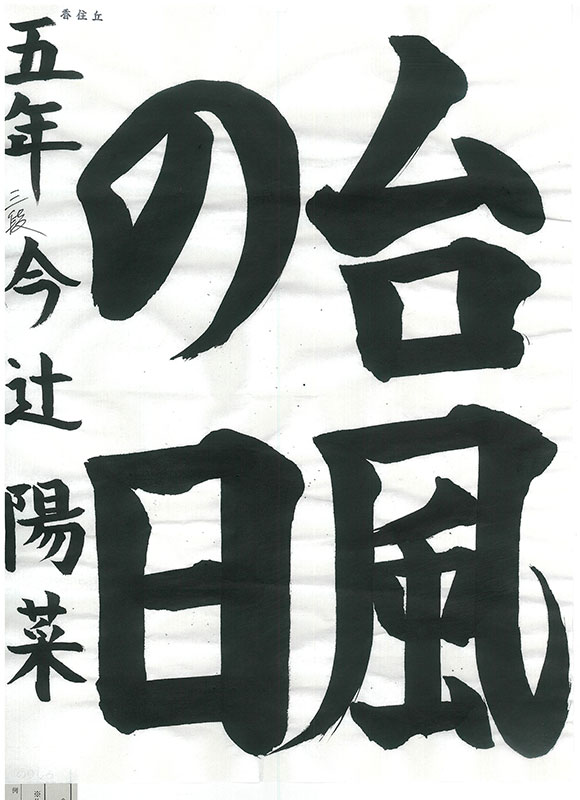 台風
の日
五年 三段 今辻 陽菜
香住丘